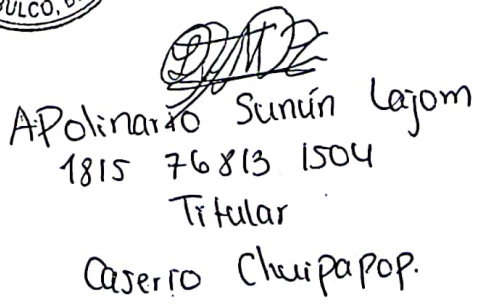 ULCO, B
APolinario Sunún Lajom
1815 76813 1504
Titular
Caserio Chuipapop.